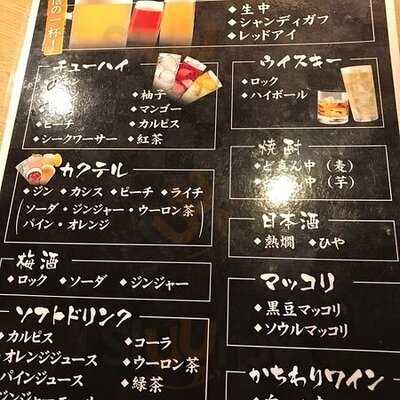 の一杯！
◆生中
◆シャンディガフ
◆レッドアイ
チューハイ
◆ピーチ
◆シークワーサー
◆柚子
◆マンゴー
◆カルピス
◆紅茶
ウイスキー
◆ロック
◆ハイボール
カクテル
◆ジン ◆カシス ◆ピーチ ◆ライチ
（ソーダ・ジンジャー・ウーロン茶
パイン・オレンジ）
焼酎
◆どまん中（麦）
◆どまん中（芋）
日本酒
◆熱燗 ◆ひや
梅酒
◆ロック ◆ソーダ ◆ジンジャー
マッコリ
◆黒豆マッコリ
◆ソウルマッコリ
ソフトドリンク
◆カルピス
◆オレンジジュース
◆パインジュース
◆コーラ
◆ウーロン茶
◆緑茶
かちわりワイン